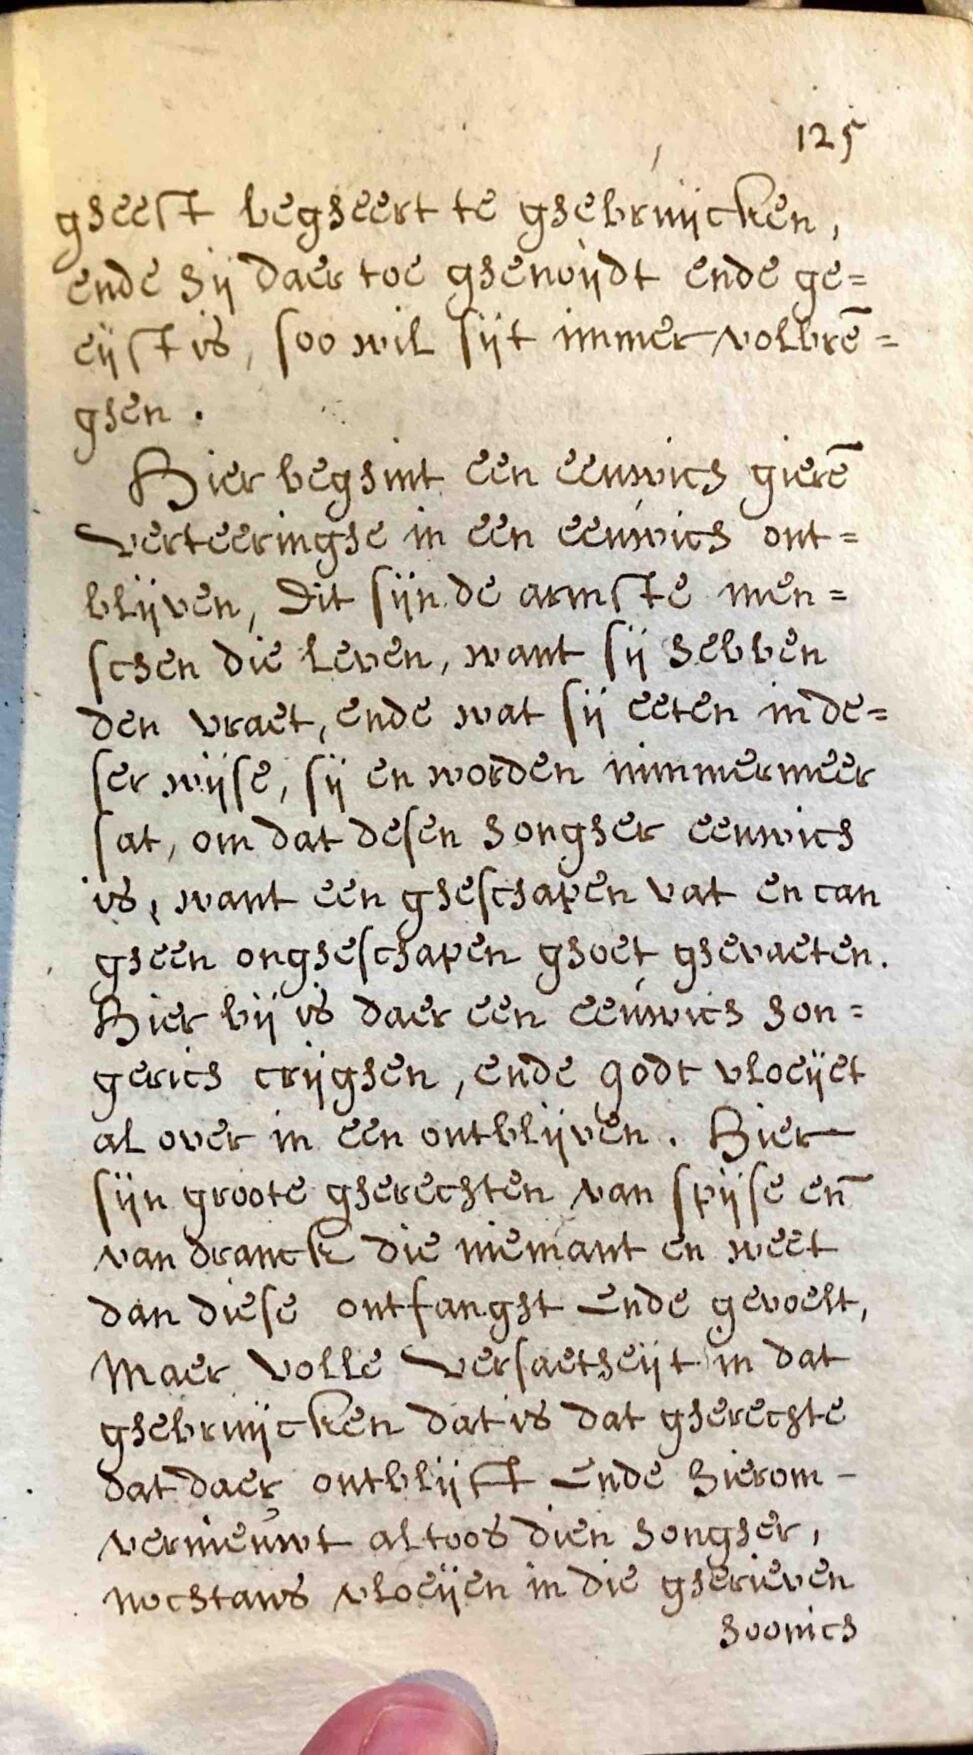 125
gheest begheert te ghebruijcken,
ende hij daer toe ghenoijdt ende ge=
eijst is, soo wil sijt immer volbrē=
ghen.
Hier beghint een eeuwich gierē
verteeringhe in een eeuwich ont=
blijven, Dit sijn de armste men=
schen die leven, want sij hebben
den vraet, ende wat sij eeten in de=
ser wijse, sij en worden nimmermeer
sat, om dat desen hongher eeuwich
is, want een gheschapen vat en can
gheen ongheschapen ghoet ghevaeten.
Hier bij is daer een eeuwich hon=
gerich crijghen, ende godt vloeijet
al over in een ontblijven. Hier
sijn groote gherechten van spijse en̄
van dranck die niemant en weet
dan diese ontfanght ende gevoelt,
Maer volle versaetheijt in dat
ghebruijcken dat is dat gherechte
dat daer ontblijft ende hierom-
vernieuwt altoos dien hongher,
nochtans vloeijen in die gherieven
hoonich